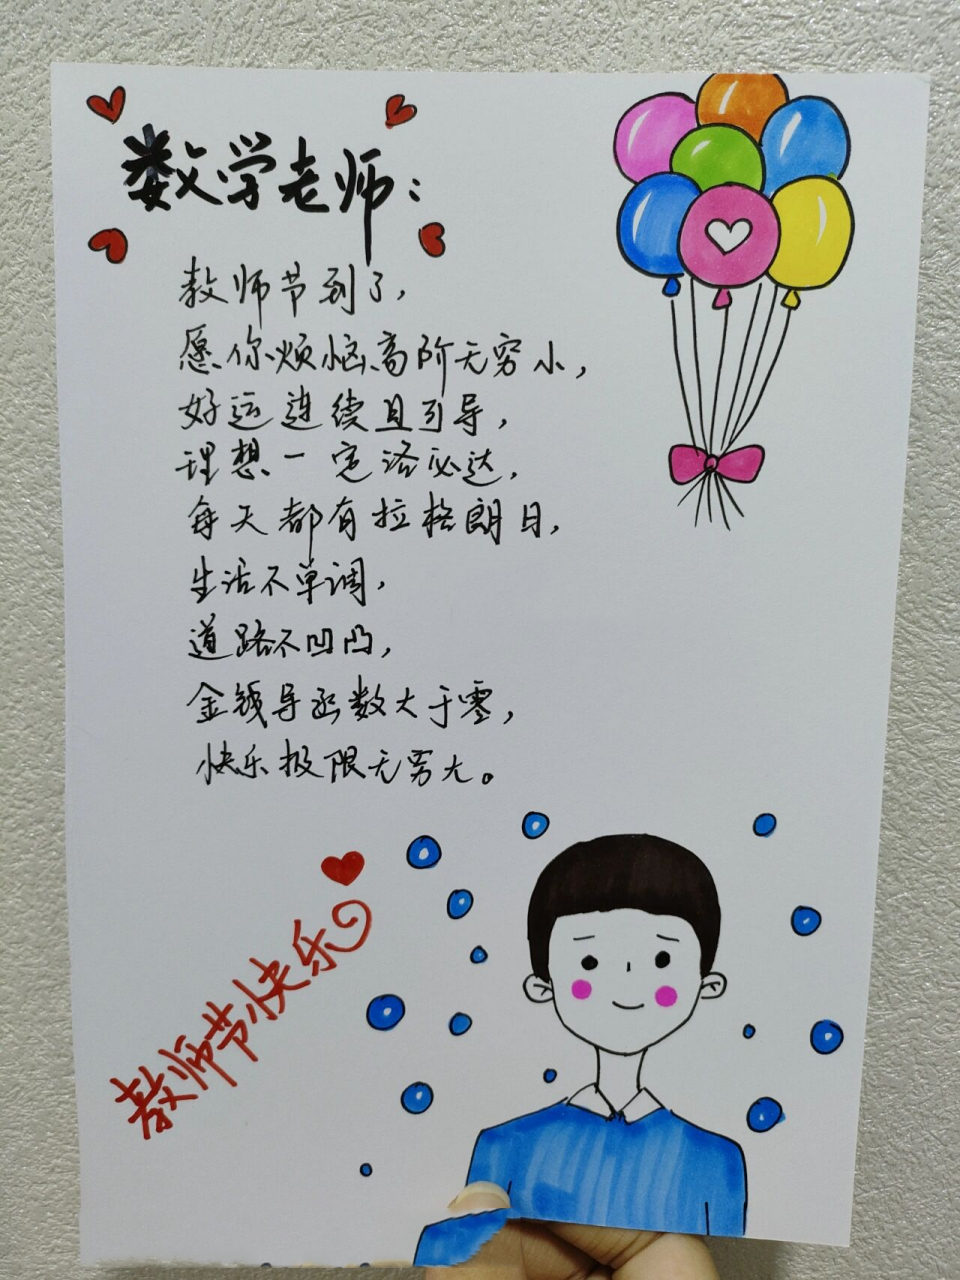 数学老师：
教师节到了，
愿你烦恼高阶无穷小，
好运连续且可导，
理想一定洛必达，
每天都有拉格朗日，
生活不单调，
道路不凹凸，
金钱导函数大于零，
快乐极限无穷大。
教师节快乐